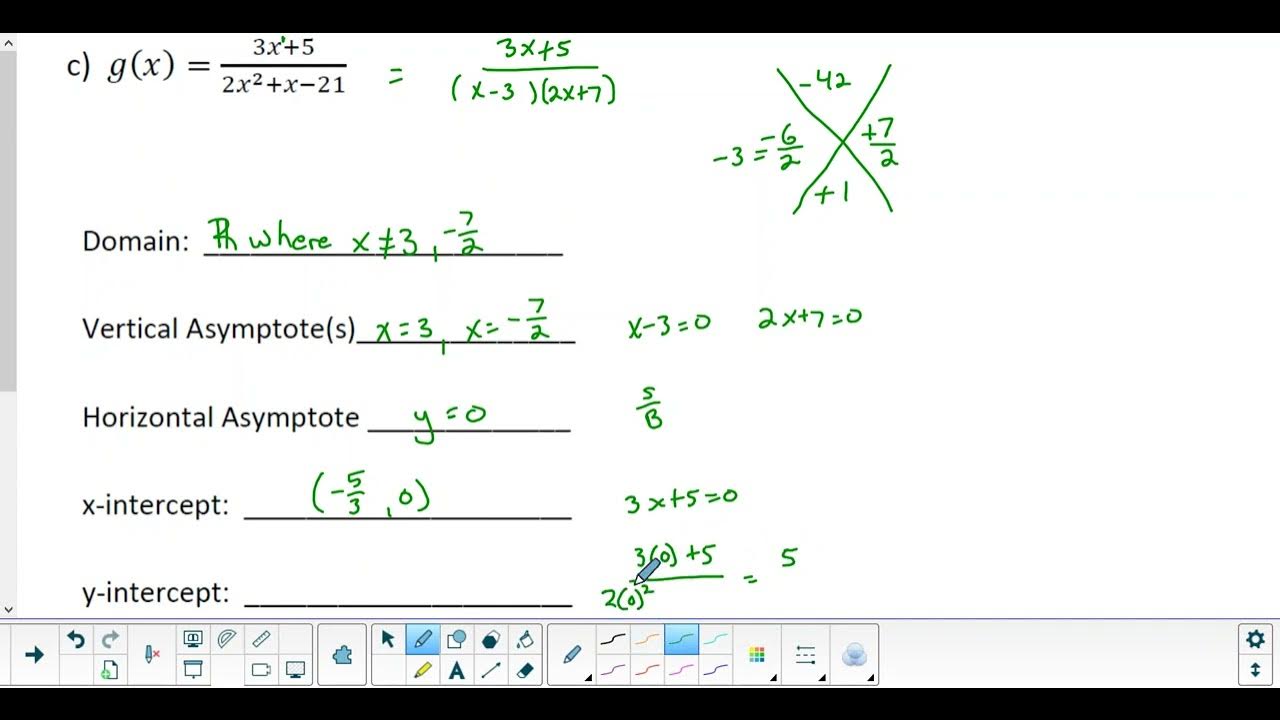 c) g(x) = 3x+5 / 2x²+x−21 = 3x+5 / (x-3)(2x+7)
-42
-3 = -6/2 +7/2
+1
Domain: where x≠3, -7/2
Vertical Asymptote(s) x=3, x=-7/2 x-3=0 2x+7=0
Horizontal Asymptote y=0 S/B
x-intercept: (-5/3, 0) 3x+5=0
y-intercept: 3(0)+5 / 2(0)² = 5
A